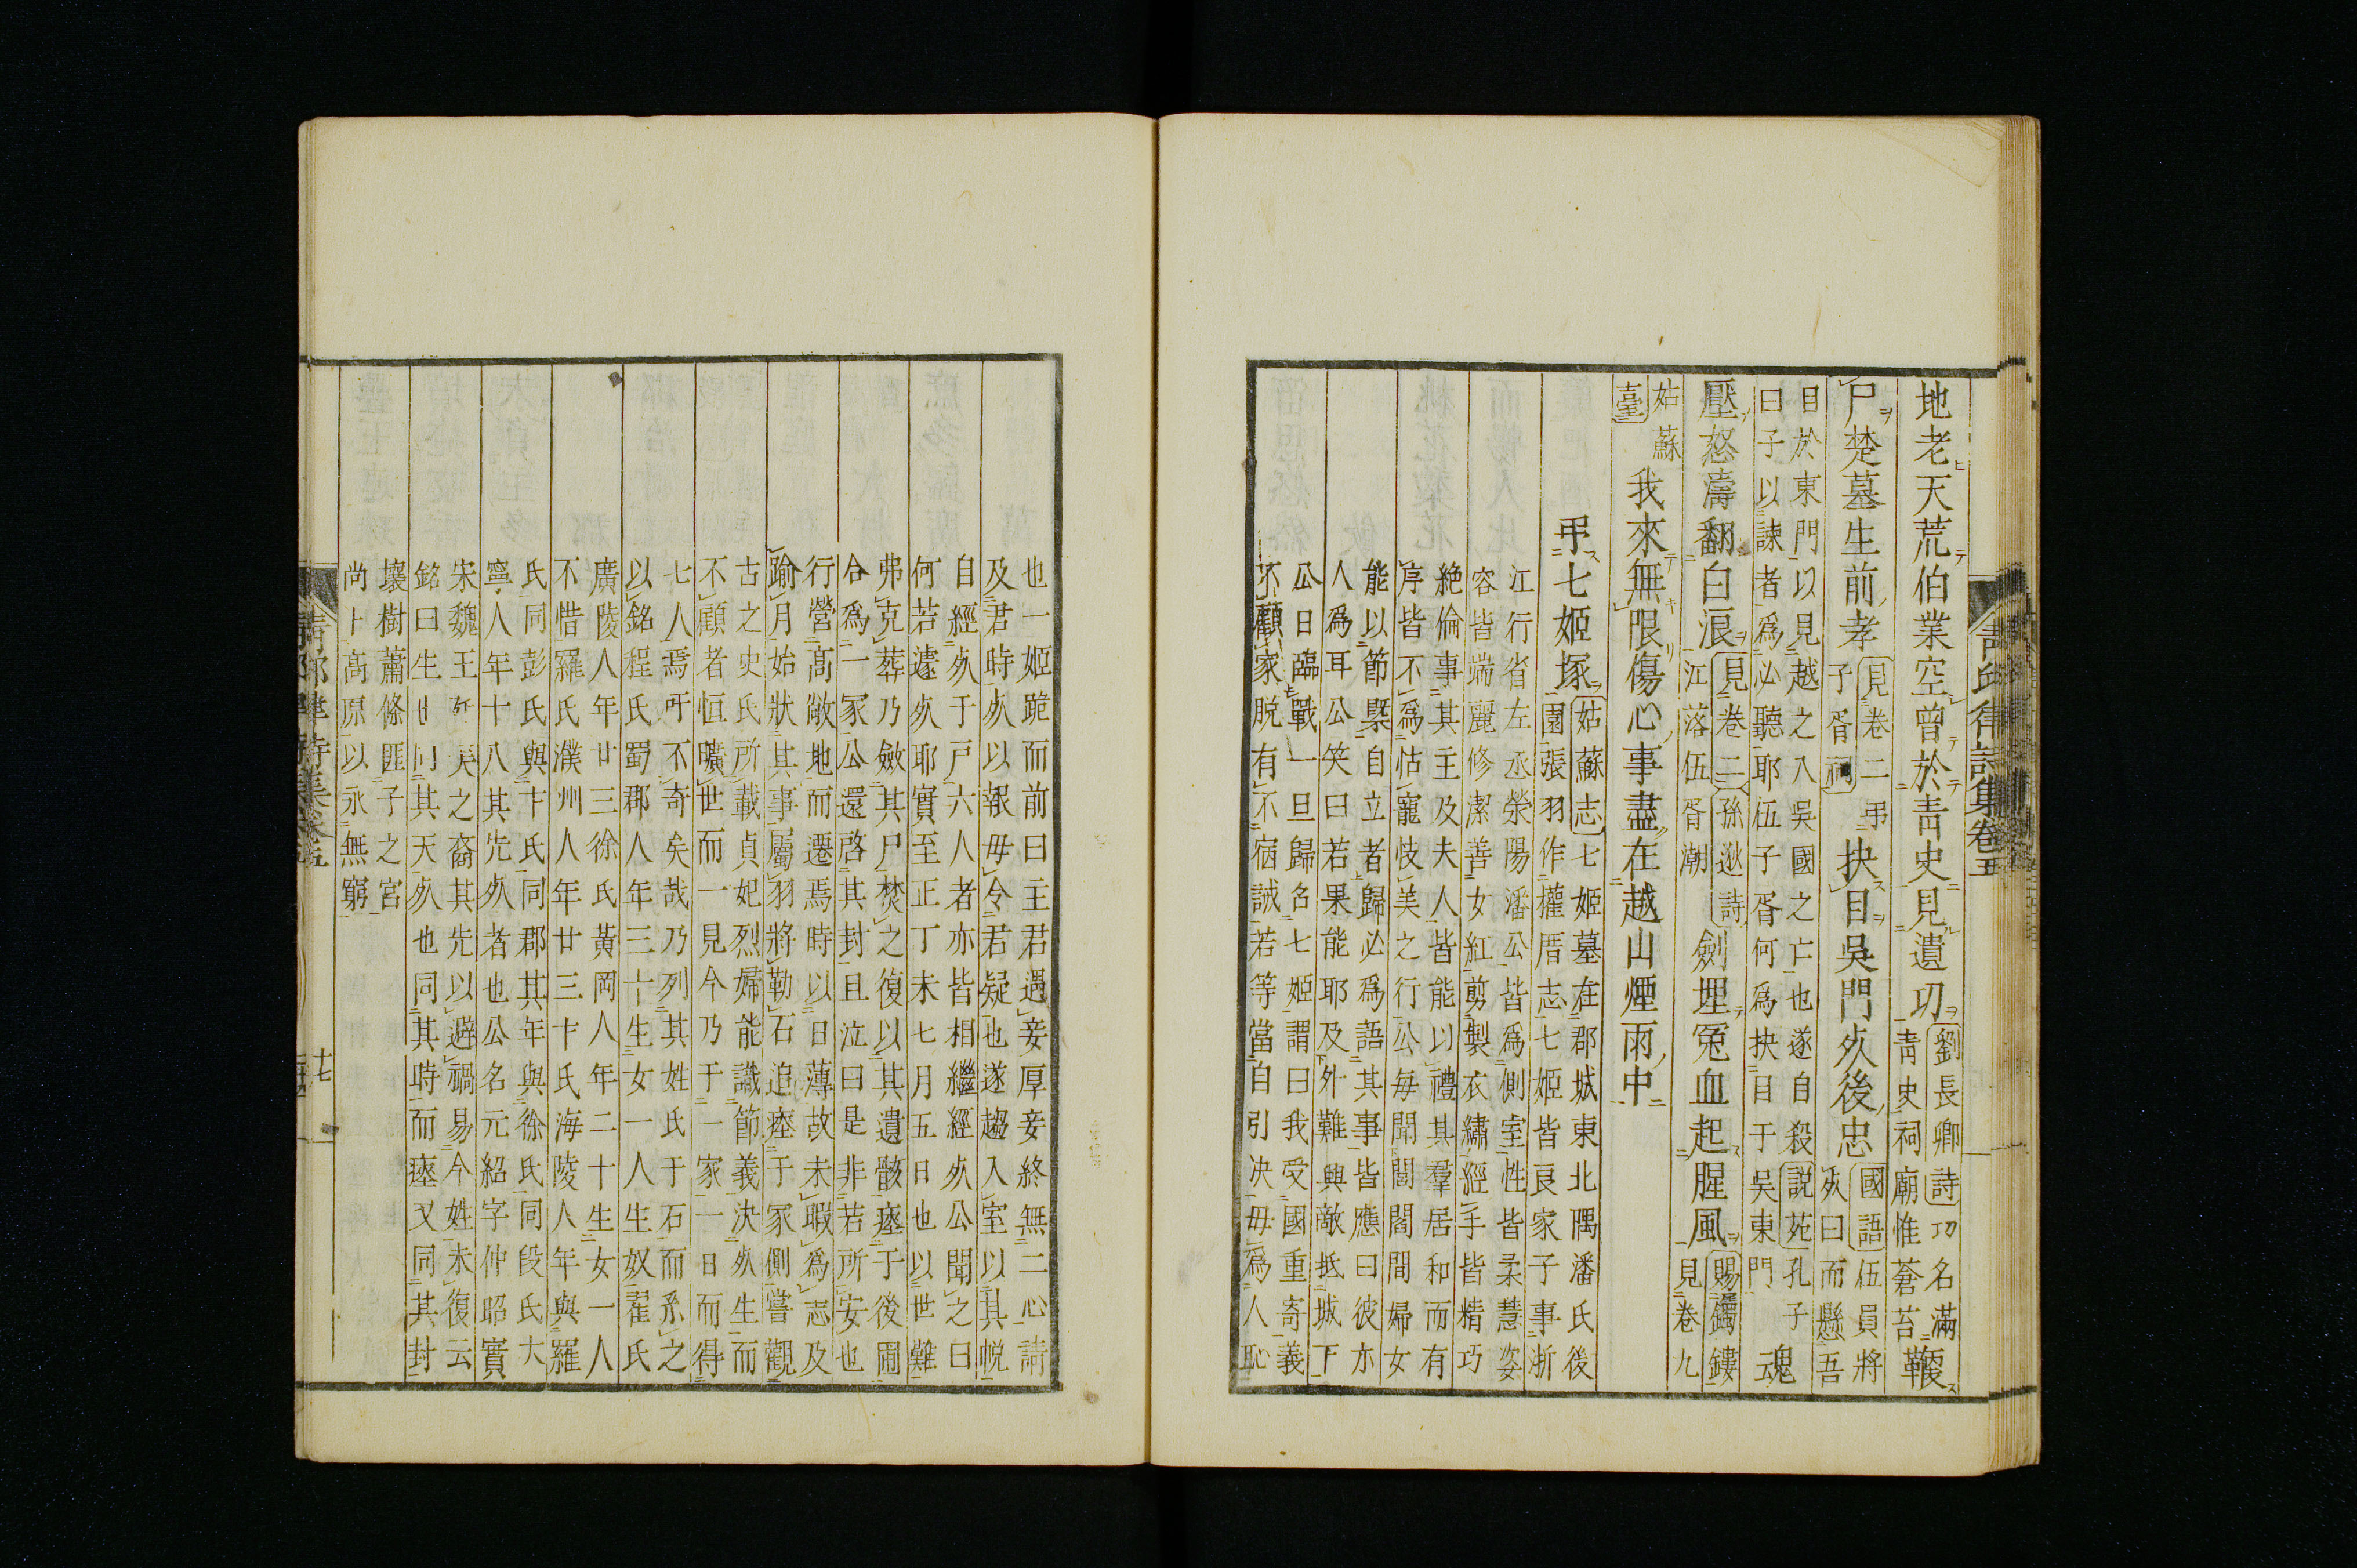 地老天荒伯業空曾於靑史見遺功
劉長卿詩功名滿
靑史祠廟惟蒼苔
鞭
尸楚墓生前孝
見卷二弔
子胥祠
抉目吳門夊後忠
國語伍員將
夊曰而懸吾
目於東門以見越之入吳國之亡也遂自殺說苑孔子
曰子以諫者爲必聽耶伍子胥何爲抉目于吳東門
魂
壓怒濤翻白浪
見卷二孫逖詩
江落伍胥潮
劍埋冤血起腥風
賜鐲鏤
見卷九
姑蘇
臺
我來無限傷心事盡在越山煙雨中
弔七姬塚
姑蘇志七姬墓在郡城東北隅潘氏後
園張羽作權厝志七姬皆良家子事浙
江行省左丞滎陽潘公皆爲側室性皆柔慧姿
容皆端麗修潔善女紅剪製衣繡經手皆精巧
絶倫事其主及夫人皆能以禮其羣居和而有
序皆不爲怙寵忮美之行公每聞閭閻間婦女
能以節槩自立者歸必爲語其事皆應曰彼亦
人爲耳公笑曰若果能耶及外難興敵抵城下
公日臨戰一旦歸名七姬謂曰我受國重寄義
不顧家脫有不宿誠若等當自引决毋爲人恥
也一姬跪而前曰主君遇妾厚妾終無二心請
及君時夊以報毋令君疑也遂趨入室以其帨
自經夊于戸六人者亦皆相繼經夊公聞之曰
何若遽夊耶實至正丁未七月五日也以世難
弗克葬乃斂其尸焚之復以其遺骸瘞于後圃
合爲一冢公還啓其封且泣曰是非若所安也
行營髙敞地而遷焉時以日薄故未暇爲志及
踰月始狀其事屬羽將勒石追瘞于冢側嘗觀
古之史氏所載貞妃烈婦能識節義决夊生而
不顧者恒曠世而一見今乃于一家一日而得
七人焉吁不奇矣哉乃列其姓氏于石而系之
以銘程氏蜀郡人年三十生女一人生奴翟氏
廣陵人年廿三徐氏黃岡人年二十生女一人
不惜羅氏濮州人年廿三卞氏海陵人年與羅
氏同彭氏與卞氏同郡其年與徐氏同段氏大
寧人年十八其先夊者也公名元紹字仲昭實
宋魏王之裔其先以避禍易今姓未復云
銘曰生同其天夊也同其時而瘞又同其封
壞樹蕭條匪子之宮
尚卜髙原以永無窮
靑邱律詩集卷五
十七